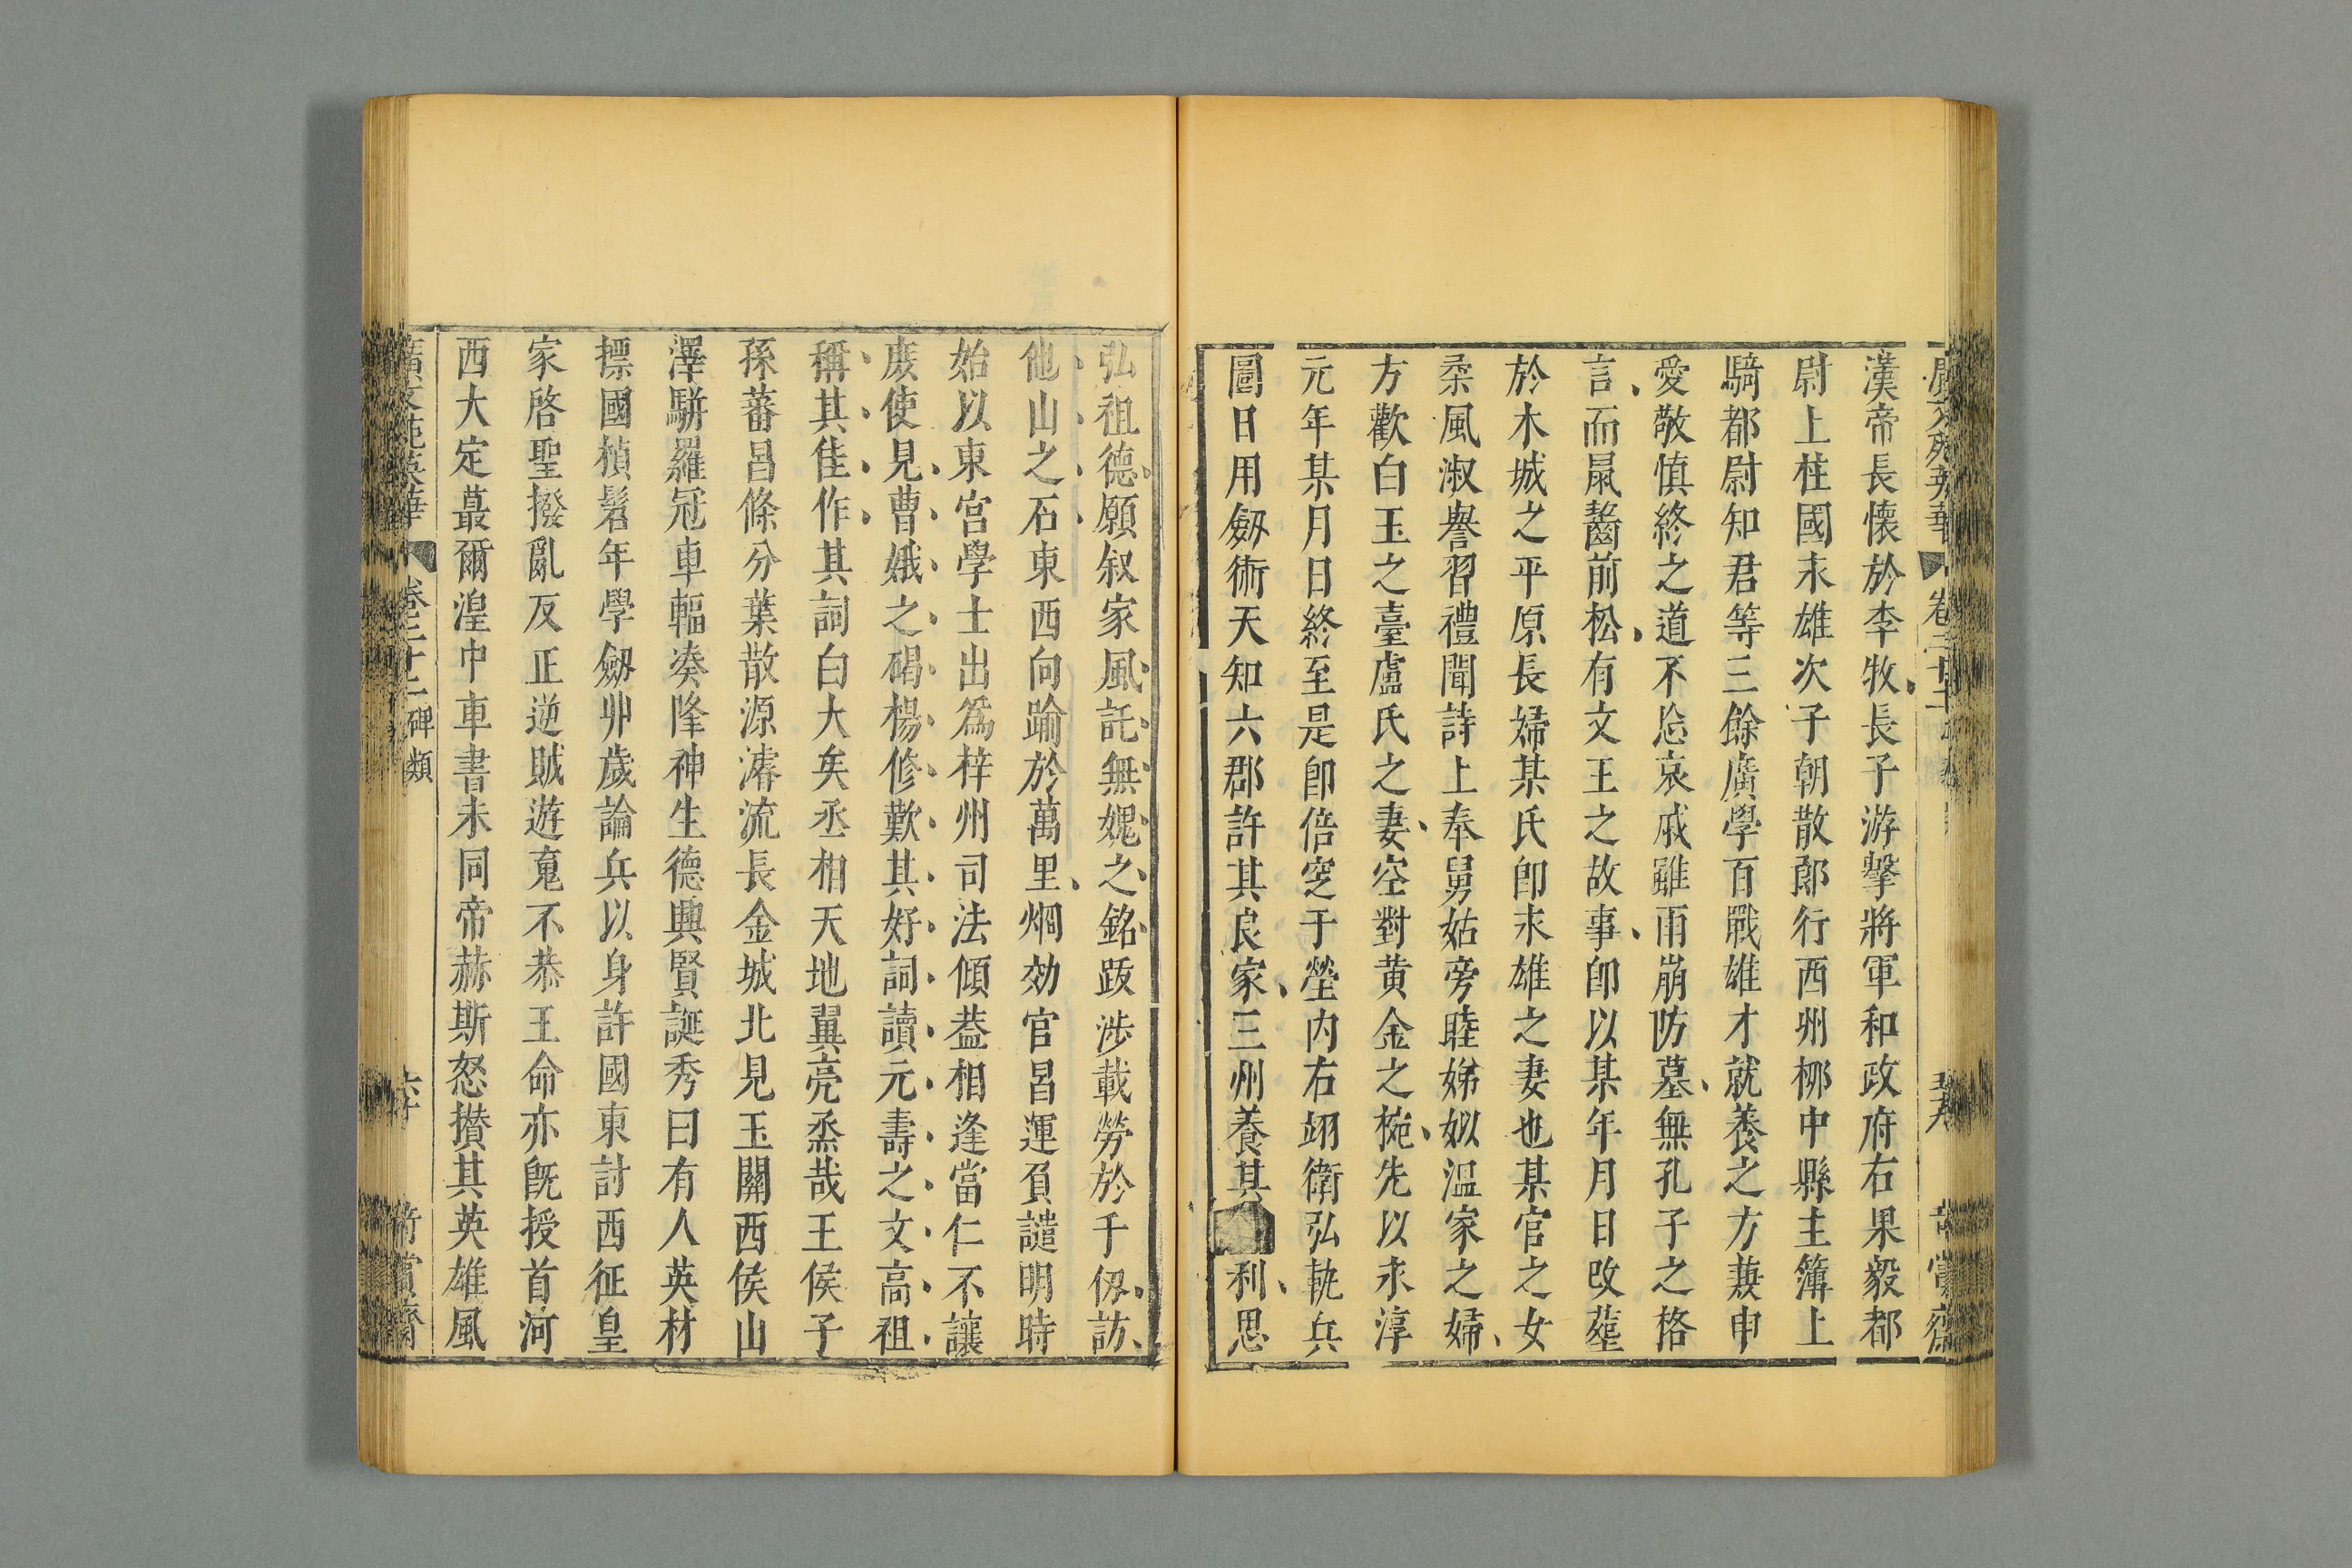 漢帝長懷於李牧長子游擊將軍和政府右果毅都
尉上柱國永雄次子朝散郎行西州柳中縣主簿上
騎都尉知君等三餘廣學百戰雄才就養之方兼申
愛敬慎終之道不忘哀戚雖雨崩防墓無孔子之格
言而鼠齧前松有文王之故事卽以某年月日改葬
於木城之平原長婦某氏卽永雄之妻也某官之女
柔風淑譽習禮聞詩上奉舅姑旁睦娣姒溫家之婦
方歡白玉之臺盧氏之妻空對黃金之椀先以永淳
元年某月日終至是卽倍窆于塋內右翊衛弘執兵
圖日用劒術天知六郡許其良家三州養其利思
弘祖德願叙家風託無媿之銘跋涉載勞於千仭訪
他山之石東西向踰於萬里烱効官昌運負譴明時
始以東宮學士出爲梓州司法傾葢相逢當仁不讓
庻使見曹娥之碣楊修歎其好詞讀元壽之文高祖
稱其佳作其詞曰大矣丞相天地翼亮烝哉王侯子
孫蕃昌條分葉散源濬流長金城北見玉關西侯山
澤駢羅冠車輻湊降神生德興賢誕秀曰有人英材
摽國楨髫年學劒丱歲論兵以身許國東討西征皇
家啓聖撥亂反正逆賊遊䰟不恭王命亦旣授首河
西大定蕞爾湟中車書未同帝赫斯怒攅其英雄風
廣文苑英華
卷二十二
碑類
六十